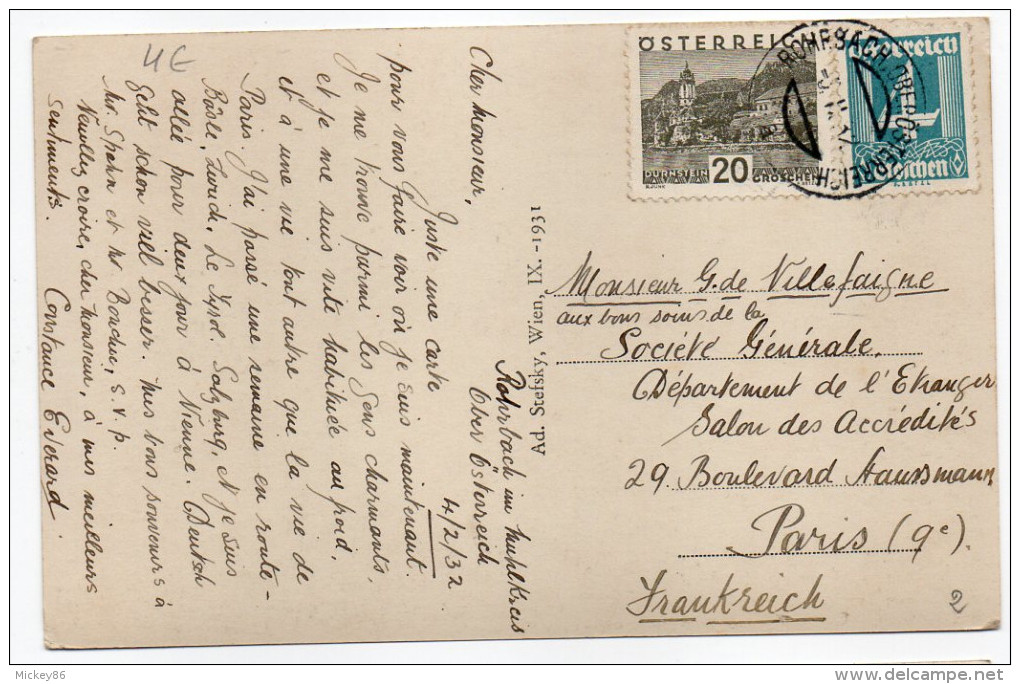 4€
Rohrbach im Mühlkreis
Ober Österreich
4/2/32
Cher Monsieur,
Juste une carte
pour vous faire voir où je suis maintenant.
Je me trouve parmi les gens charmants,
et je me suis vite habituée au froid,
et à une vie tout autre que la vie de
Paris. J'ai passé une semaine en route -
Bâsle, Zurich, Le Tyrol, Salzburg, et je suis
allée pour deux jours à Vienne. Deutsch
geht schon viel besser. Mes bons souvenirs à
Mr. Spahn et Mr Bonduc, s.v.p.
Veuillez croire, cher Monsieur, à mes meilleurs
sentiments. Constance Everard.
Ad. Stefsky, Wien, IX. - 1931
ÖSTERREICH
DÜRNSTEIN 20 GROSCHEN
Österreich
Groschen
ROHRBACH, OBERÖSTERREICH
Monsieur G. de Villefaigne
aux bons soins de la
Société Générale,
Département de l'Etranger
Salon des Accrédités
29 Boulevard Haussmann
Paris (9e).
Frankreich
2
Mickey86
delcampe.net